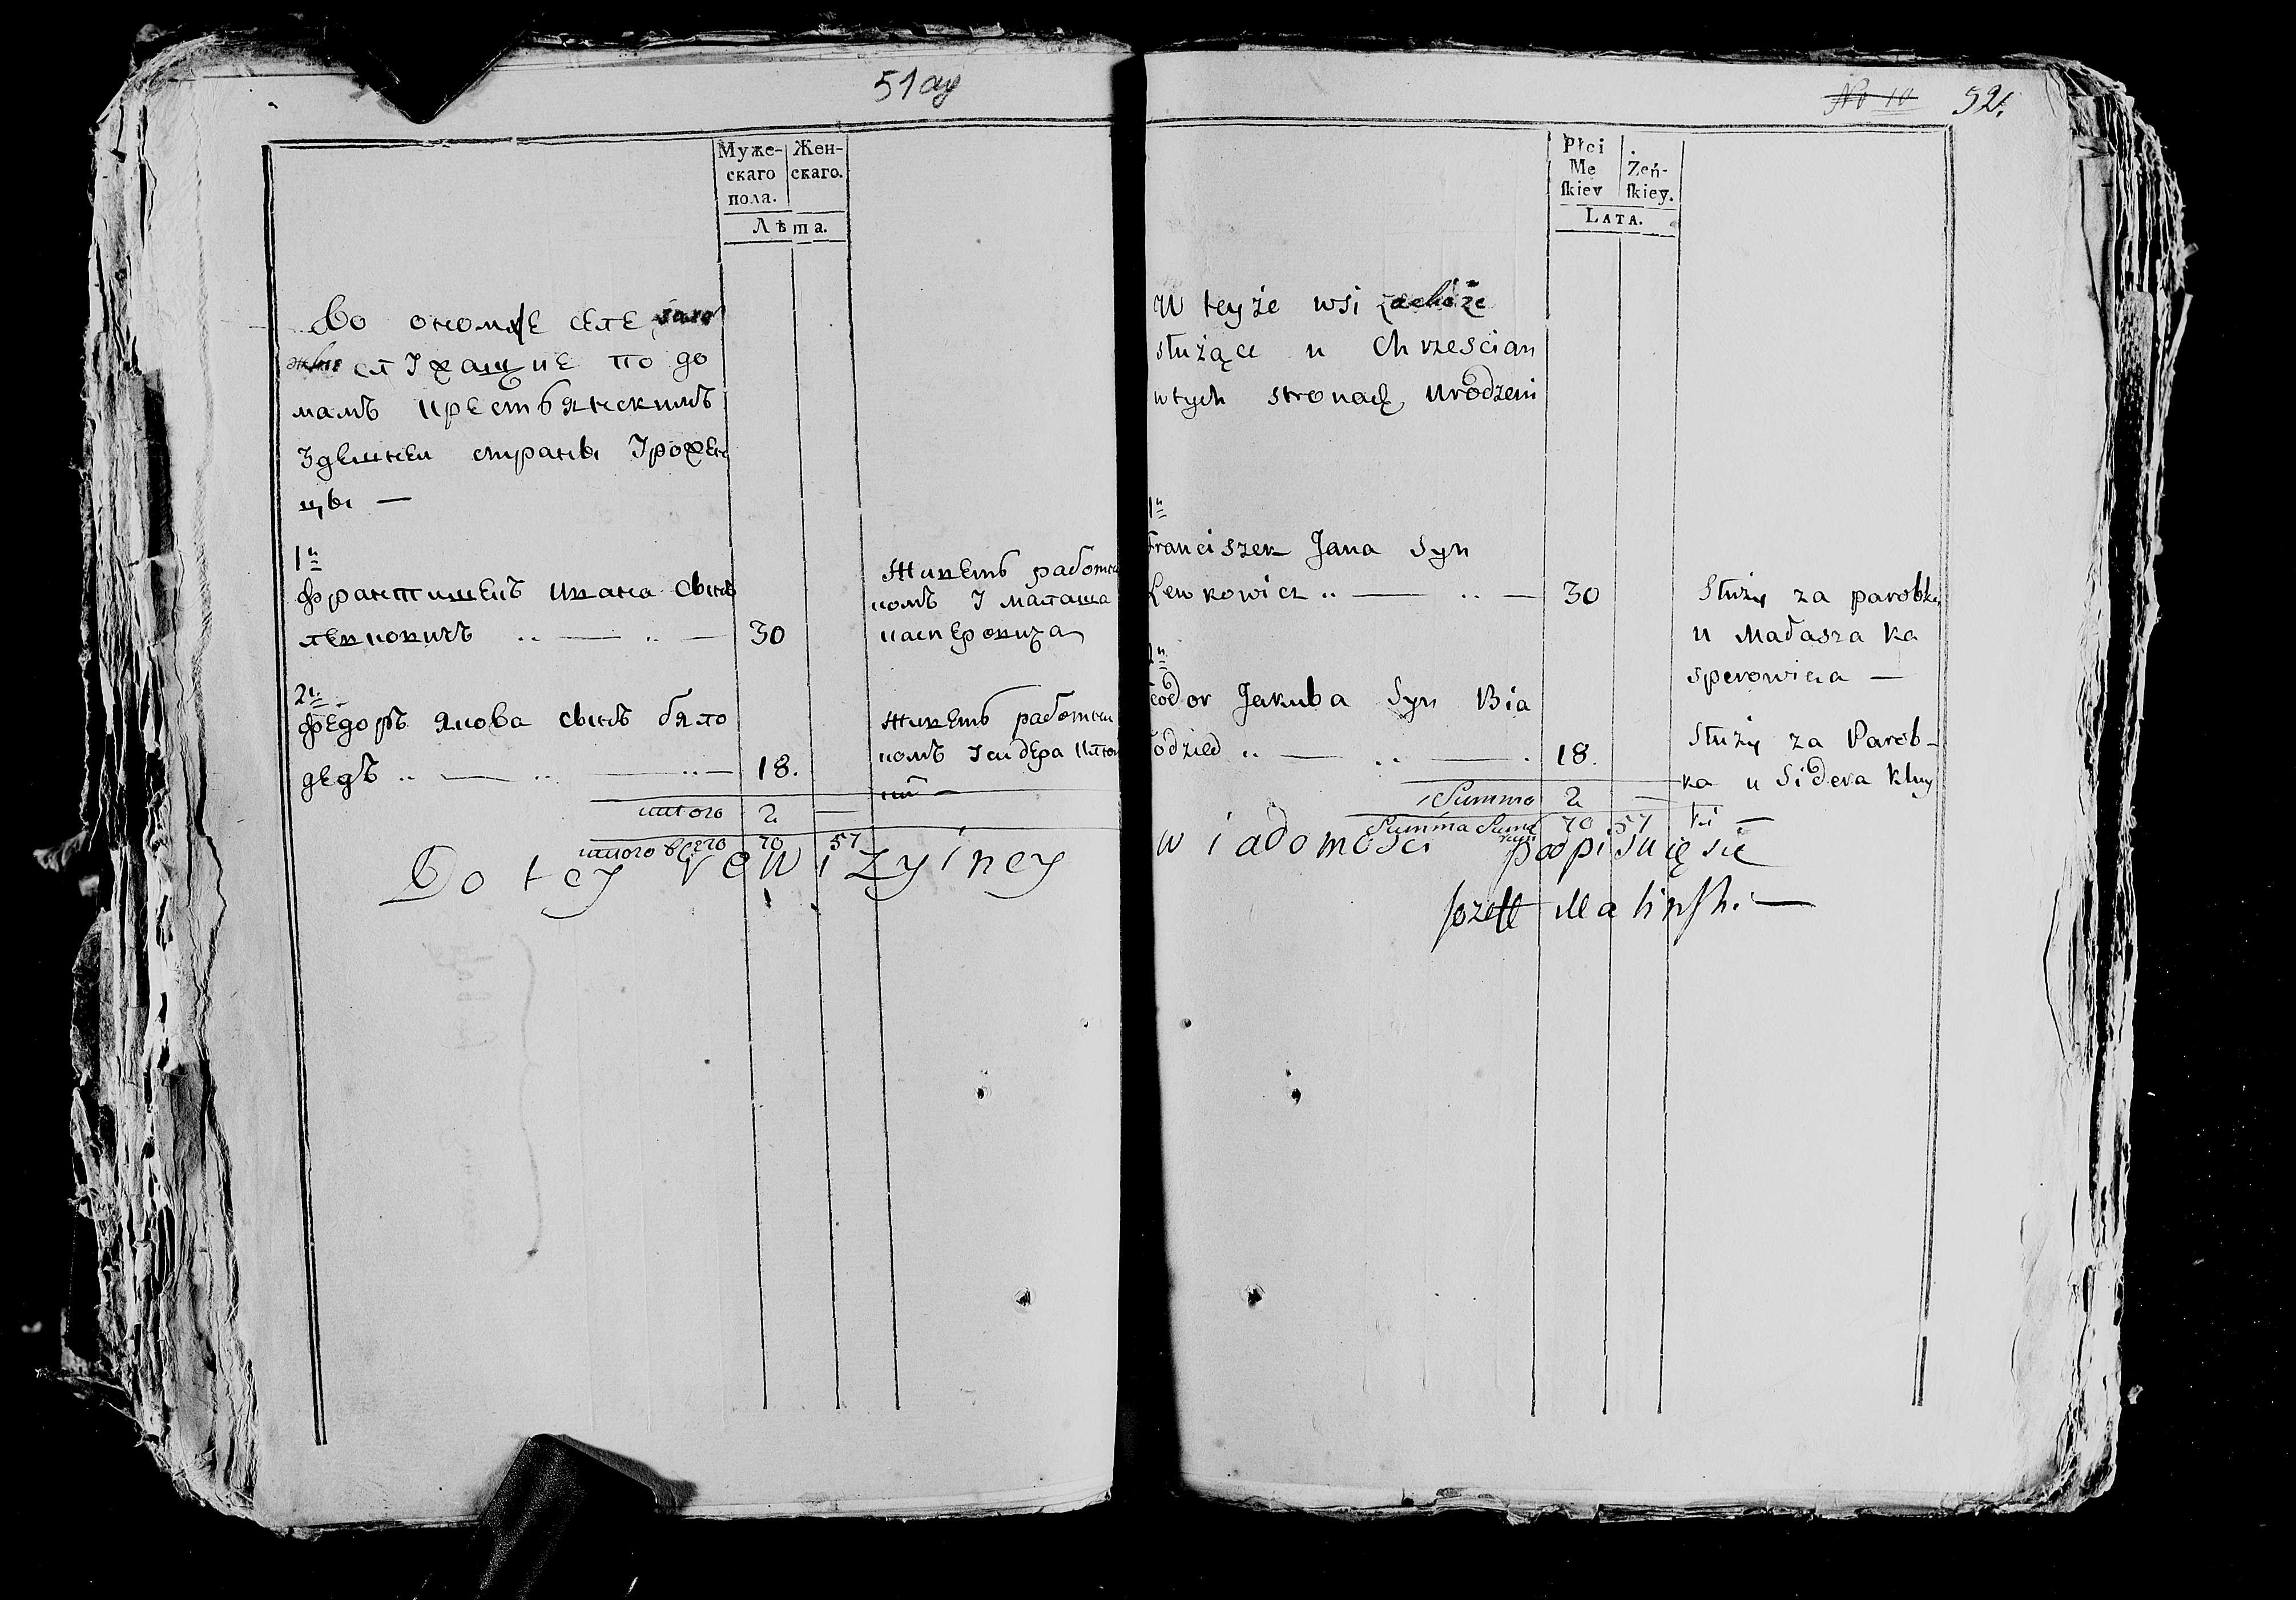 51 об
Муже-
скаго
пола.
Жен-
скаго.
Лѣта.
Во ономже селе
служащие по до
мамъ крестьянскимъ
здешнеи страны урожен
цы —
1й
Франтишекъ ивана сынъ
левковичъ .. — .. — 30
Живетъ работни
комъ у малаша
касперовича
2й
Федоръ якова сынъ бяло
дедъ .. — .. — .. — 18.
Живетъ работни
комъ у сидера
итого 2 —
итого всего 70 57
Do tey rewizyiney
52.
Płci
Mę
ſkiey
Żeń-
ſkiey.
LATA.
W teyże wsi zachoże
służące u Chrzescian
w tych stronach urodzeni
1й
Franciszek Jana Syn
Lewkowicz .. — .. — 30
Służy za parobka
u Małasza Ka
sperowicza —
2й
eodor Jakuba Syn Bia
łodzied .. — .. — . 18.
Służy za Parob-
ka u Sidera Kluy
ki —
Summa 2 —
Summa Sum 70 57
wiadomości podpisuię się
Jozeff Malinſki —